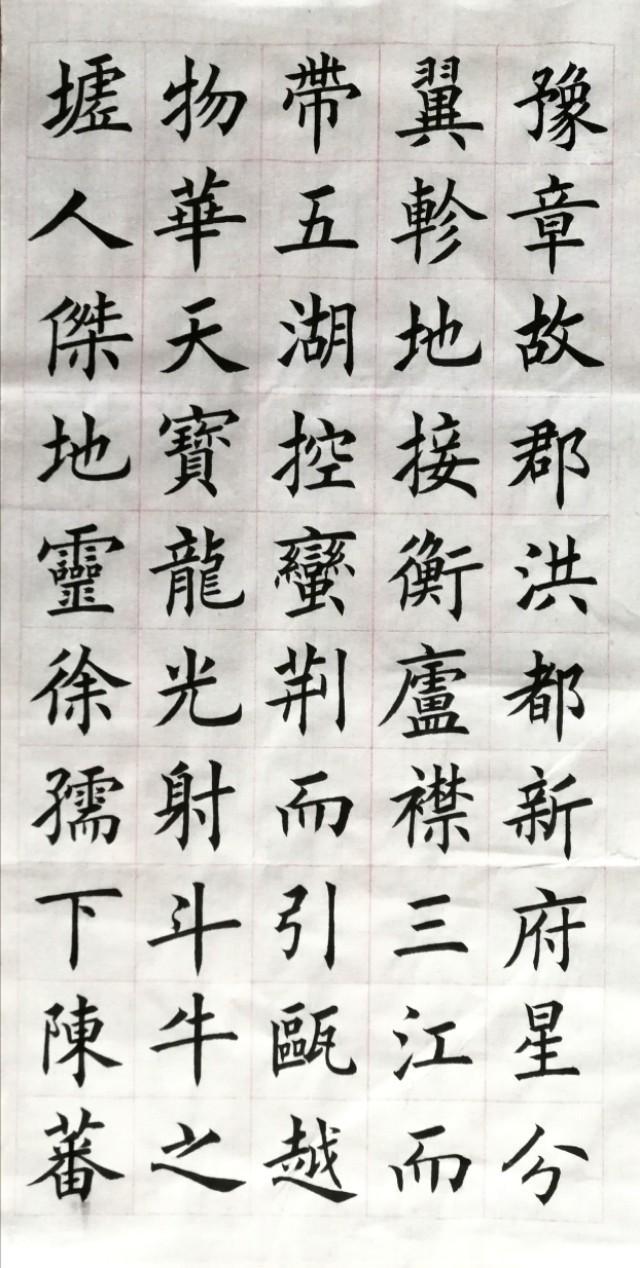 豫章故郡洪都新府星分
翼軫地接衡廬襟三江而
帶五湖控蠻荆而引甌越
物華天寶龍光射斗牛之
墟人傑地靈徐孺下陳蕃